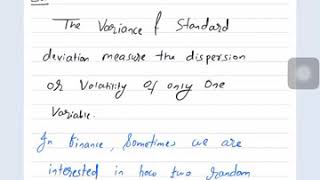 The Variance & Standard
deviation measure the dispersion
or Volatility of only One
Variable.
In Finance, Sometimes we are
interested in how two random